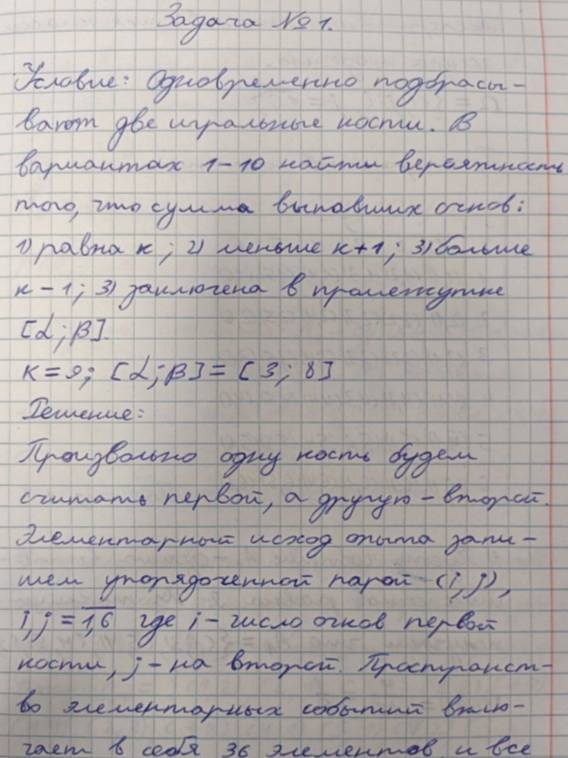 Задача №1.
Условие: Одновременно подбрасы-
вают две игральные кости. В
вариантах 1-10 найти вероятность
того, что сумма выпавших очков:
1) равна к; 2) меньше к+1; 3) больше
к-1; 3) заключена в промежутке
[α;β].
к=9; [α;β]=[3;8]
Решение:
Произвольно одну кость будем
считать первой, а другую - второй.
Элементарный исход опыта запи-
шем упорядоченной парой (i,j),
i,j = 1,6 где i - число очков первой
кости, j - на второй. Пространст-
во элементарных событий вклю-
чает в себя 36 элементов и все